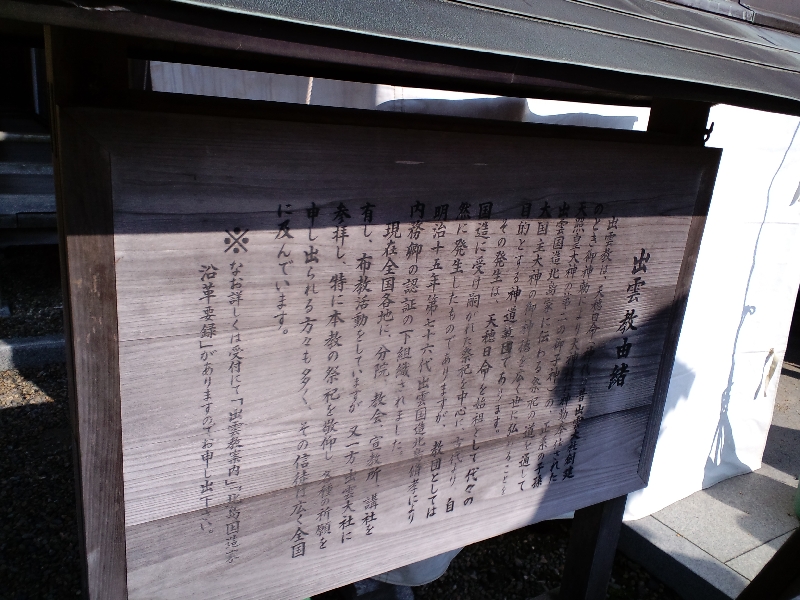 出雲教由緒
出雲教は、天穂日命
のとき御神勅により
天照皇大神の第二の御子神
出雲国造北島家に伝わる祭祀の道を通して
大国主大神の御神徳を
目的とする神道教団であります。
その発生は、天穂日命を始祖として代々の
国造に受け継がれた祭祀を中心に古代より自
然に発生したものでありますが、教団としては
明治十五年、第七十六代出雲国造北島脩孝により
内務卿の認証の下組織されました。
現在全国各地に、分院、教会、宣教所、講社を
有し、布教活動をしていますが、又一方出雲大社に
参拝し、特に本教の祭祀を敬仰し各種の祈願を
申し出られる方々も多く、その信徒は広く全国
に及んでいます。
※なお詳しくは受付にて「出雲教案内」「北島国造家
沿革要録」がありますのでお申し出下さい。